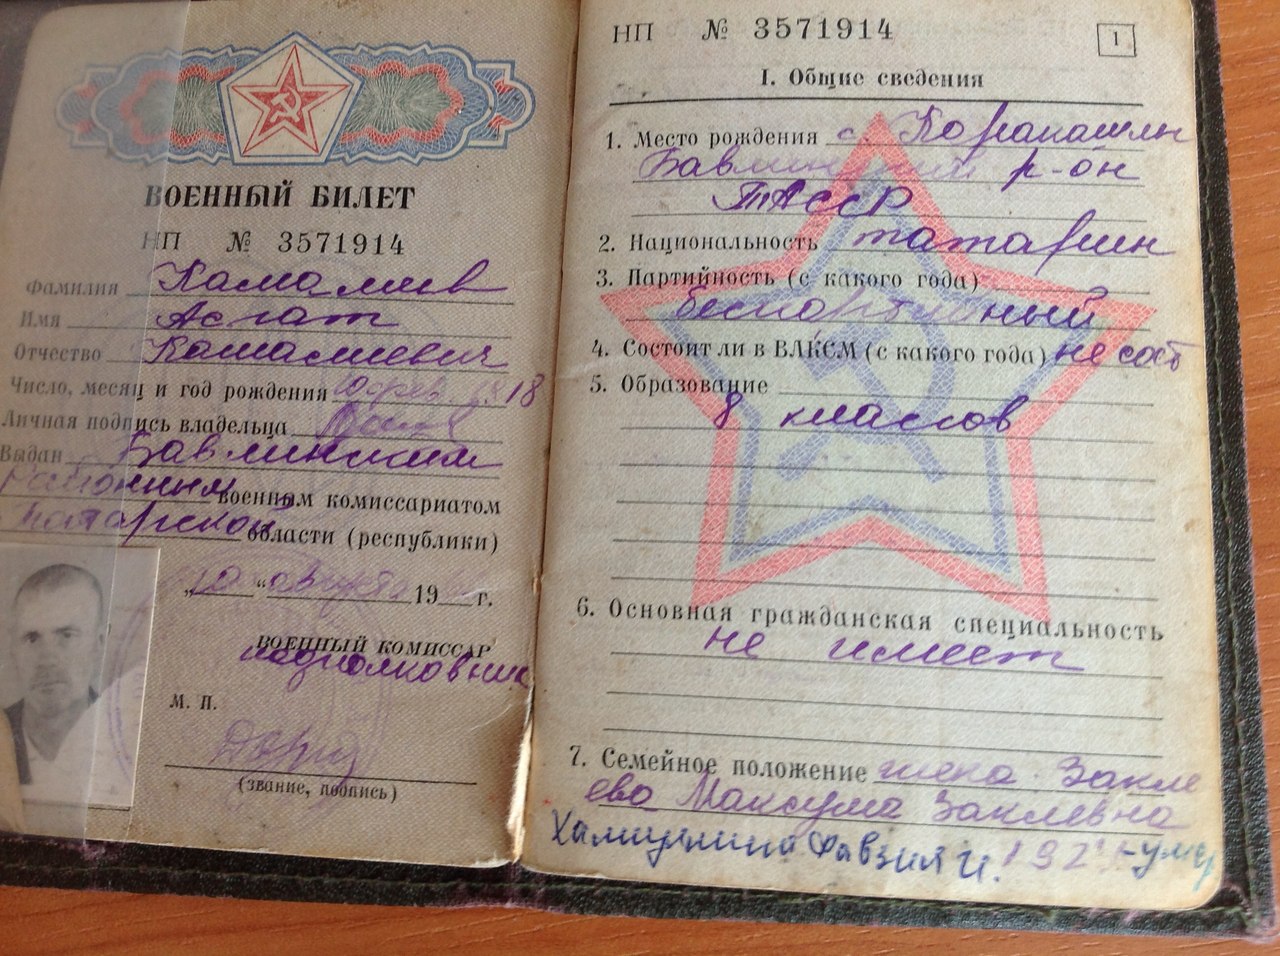 ВОЕННЫЙ БИЛЕТ
НП № 3571914
Фамилия Камалиев
Имя Асгат
Отчество Камалиевич
Число, месяц и год рождения 18
Личная подпись владельца
Выдан Бавлинским
Районным военным комиссариатом
татарской области (республики)
„10“ августа 19 г.
ВОЕННЫЙ КОМИССАР
подполковник
М. П.
(звание, подпись)
НП № 3571914
1
I. Общие сведения
1. Место рождения с.
Бавлинский р-он
ТАССР
2. Национальность татарин
3. Партийность (с какого года)
беспартийный
4. Состоит ли в ВЛКСМ (с какого года) не сост
5. Образование
8 классов
6. Основная гражданская специальность
не имеет
7. Семейное положение жена Закие
ева Максума Закиевна
Фавзия И. 192